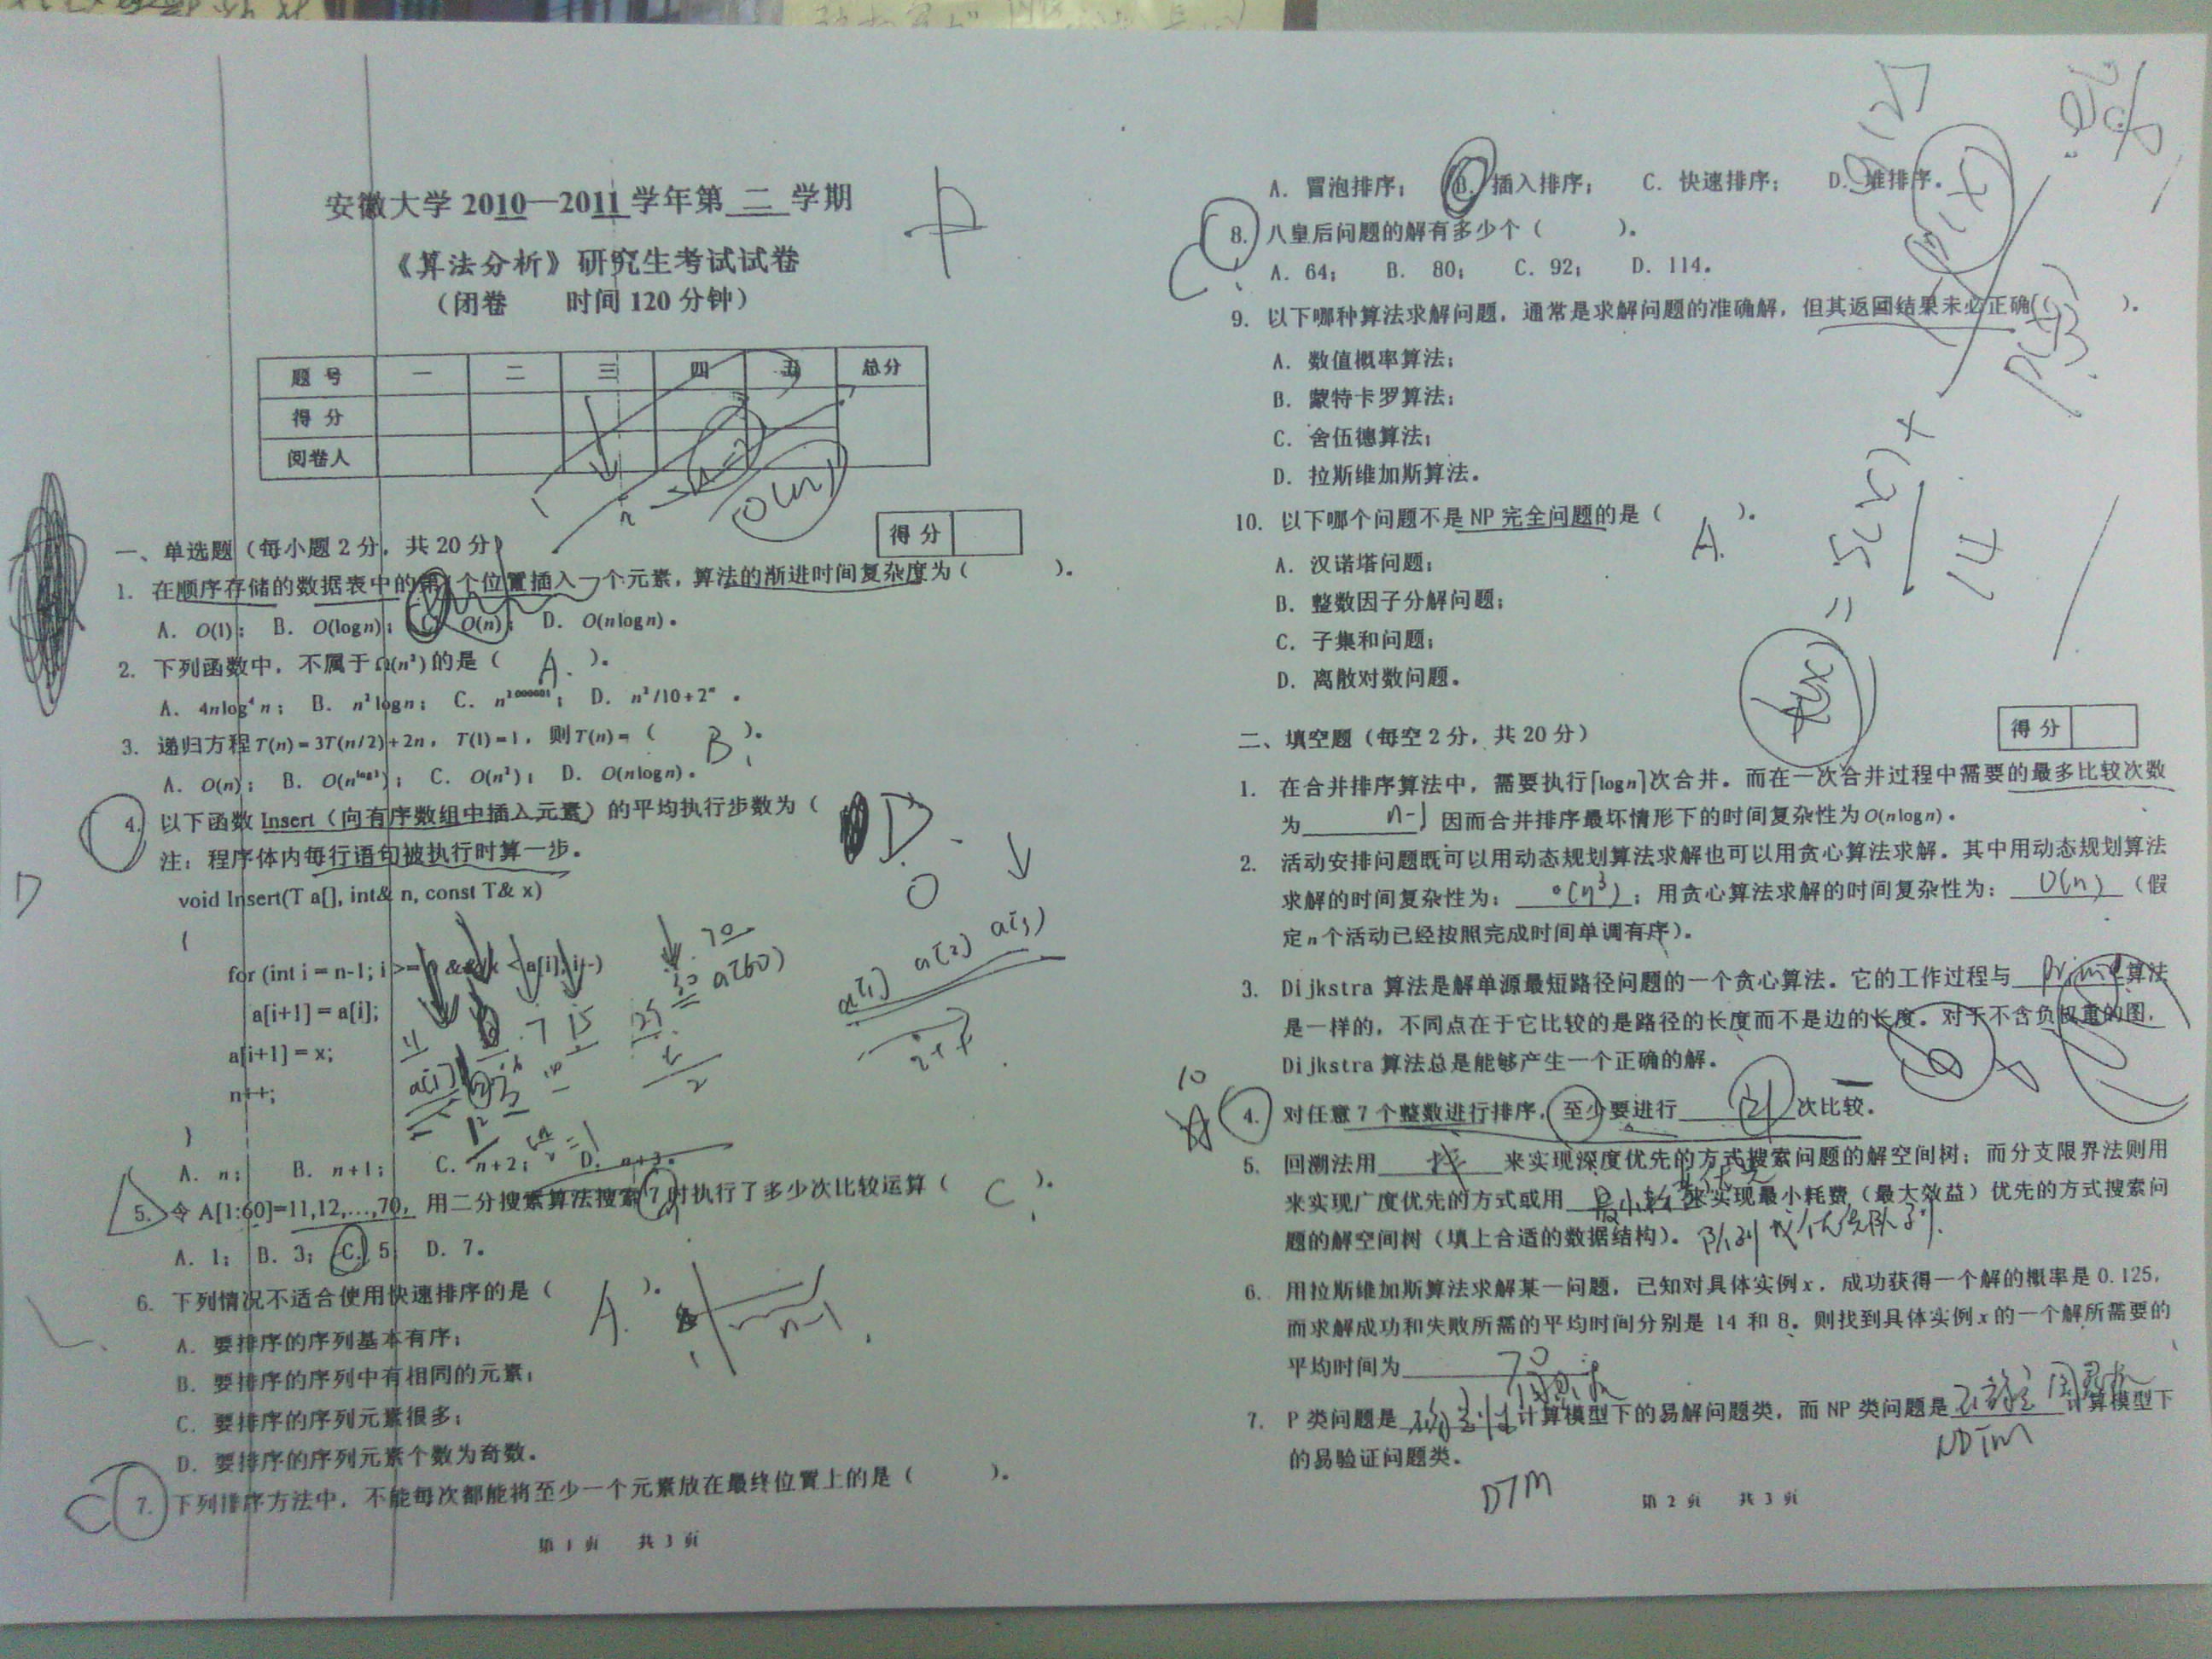 安徽大学 2010—2011 学年第 二 学期
《算法分析》研究生考试试卷
（闭卷 时间 120 分钟）
题 号 一 二 三 四 五 总分
得 分
阅卷人
得 分
一、单选题（每小题 2 分，共 20 分）
1. 在顺序存储的数据表中的第 i 个位置插入一个元素，算法的渐进时间复杂度为（ ）。
A. O(1)； B. O(logn)； C. O(n)； D. O(nlogn)。
2. 下列函数中，不属于Ω(n²)的是（ A. ）。
A. 4nlog⁴n； B. n²logn； C. ； D. n²/10+2ⁿ 。
3. 递归方程T(n)=3T(n/2)+2n，T(1)=1，则T(n)=（ B ）。
A. O(n)； B. ； C. O(n²)； D. O(nlogn)。
4. 以下函数 Insert（向有序数组中插入元素）的平均执行步数为（ D
注：程序体内每行语句被执行时算一步。
void Insert(T a[], int& n, const T& x)
{
for (int i = n-1; i >= 0 && x < a[i]; i--)
a[i+1] = a[i];
a[i+1] = x;
n++;
}
A. n； B. n+1； C. n+2； D. n+3。
5. 令 A[1:60]=11,12,…,70，用二分搜索算法搜索 7 时执行了多少次比较运算（ C ）。
A. 1； B. 3； C. 5 D. 7。
6. 下列情况不适合使用快速排序的是（ A. ）。
A. 要排序的序列基本有序；
B. 要排序的序列中有相同的元素；
C. 要排序的序列元素很多；
D. 要排序的序列元素个数为奇数。
7. 下列排序方法中，不能每次都能将至少一个元素放在最终位置上的是（ ）。
第 1 页 共 3 页
A. 冒泡排序； B. 插入排序； C. 快速排序； D. 堆排序。
8. 八皇后问题的解有多少个（ ）。
A. 64； B. 80； C. 92； D. 114。
9. 以下哪种算法求解问题，通常是求解问题的准确解，但其返回结果未必正确（ ）。
A. 数值概率算法；
B. 蒙特卡罗算法；
C. 舍伍德算法；
D. 拉斯维加斯算法。
10. 以下哪个问题不是 NP 完全问题的是（ A. ）。
A. 汉诺塔问题；
B. 整数因子分解问题；
C. 子集和问题；
D. 离散对数问题。
得 分
二、填空题（每空 2 分，共 20 分）
1. 在合并排序算法中，需要执行⌈logn⌉次合并。而在一次合并过程中需要的最多比较次数
为 n-1 因而合并排序最坏情形下的时间复杂性为O(nlogn)。
2. 活动安排问题既可以用动态规划算法求解也可以用贪心算法求解。其中用动态规划算法
求解的时间复杂性为： o(n³) ；用贪心算法求解的时间复杂性为： O(n) （假
定 n 个活动已经按照完成时间单调有序）。
3. Dijkstra 算法是解单源最短路径问题的一个贪心算法。它的工作过程与 算法
是一样的，不同点在于它比较的是路径的长度而不是边的长度。对于不含负权重的图，
Dijkstra 算法总是能够产生一个正确的解。
4. 对任意 7 个整数进行排序，至少要进行 21 次比较。
5. 回溯法用 栈 来实现深度优先的方式搜索问题的解空间树；而分支限界法则用
来实现广度优先的方式或用 来实现最小耗费（最大效益）优先的方式搜索问
题的解空间树（填上合适的数据结构）。 队列 或优先队列.
6. 用拉斯维加斯算法求解某一问题，已知对具体实例 x，成功获得一个解的概率是 0.125，
而求解成功和失败所需的平均时间分别是 14 和 8。则找到具体实例 x 的一个解所需要的
平均时间为 70
7. P 类问题是 计算模型下的易解问题类，而 NP 类问题是 计算模型下
NDTM
的易验证问题类。
DTM
第 2 页 共 3 页